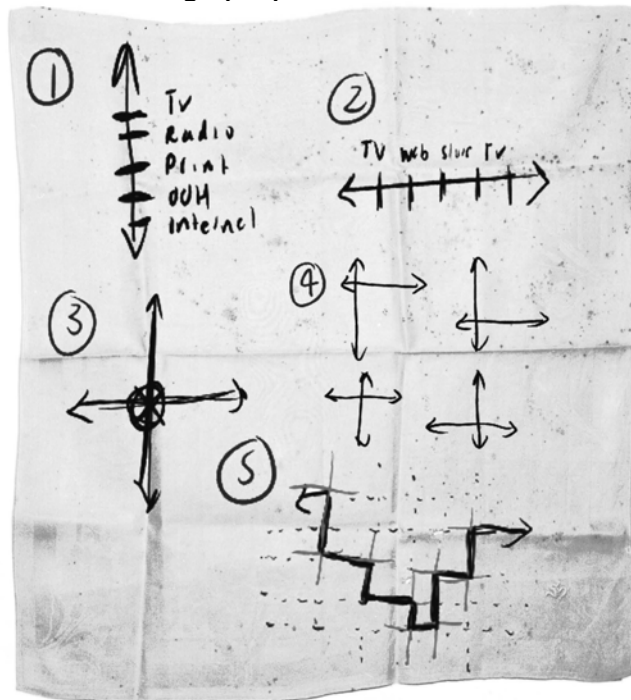 1
TV
Radio
Print
OOH
Internet
2
TV web store TV
3
4
5